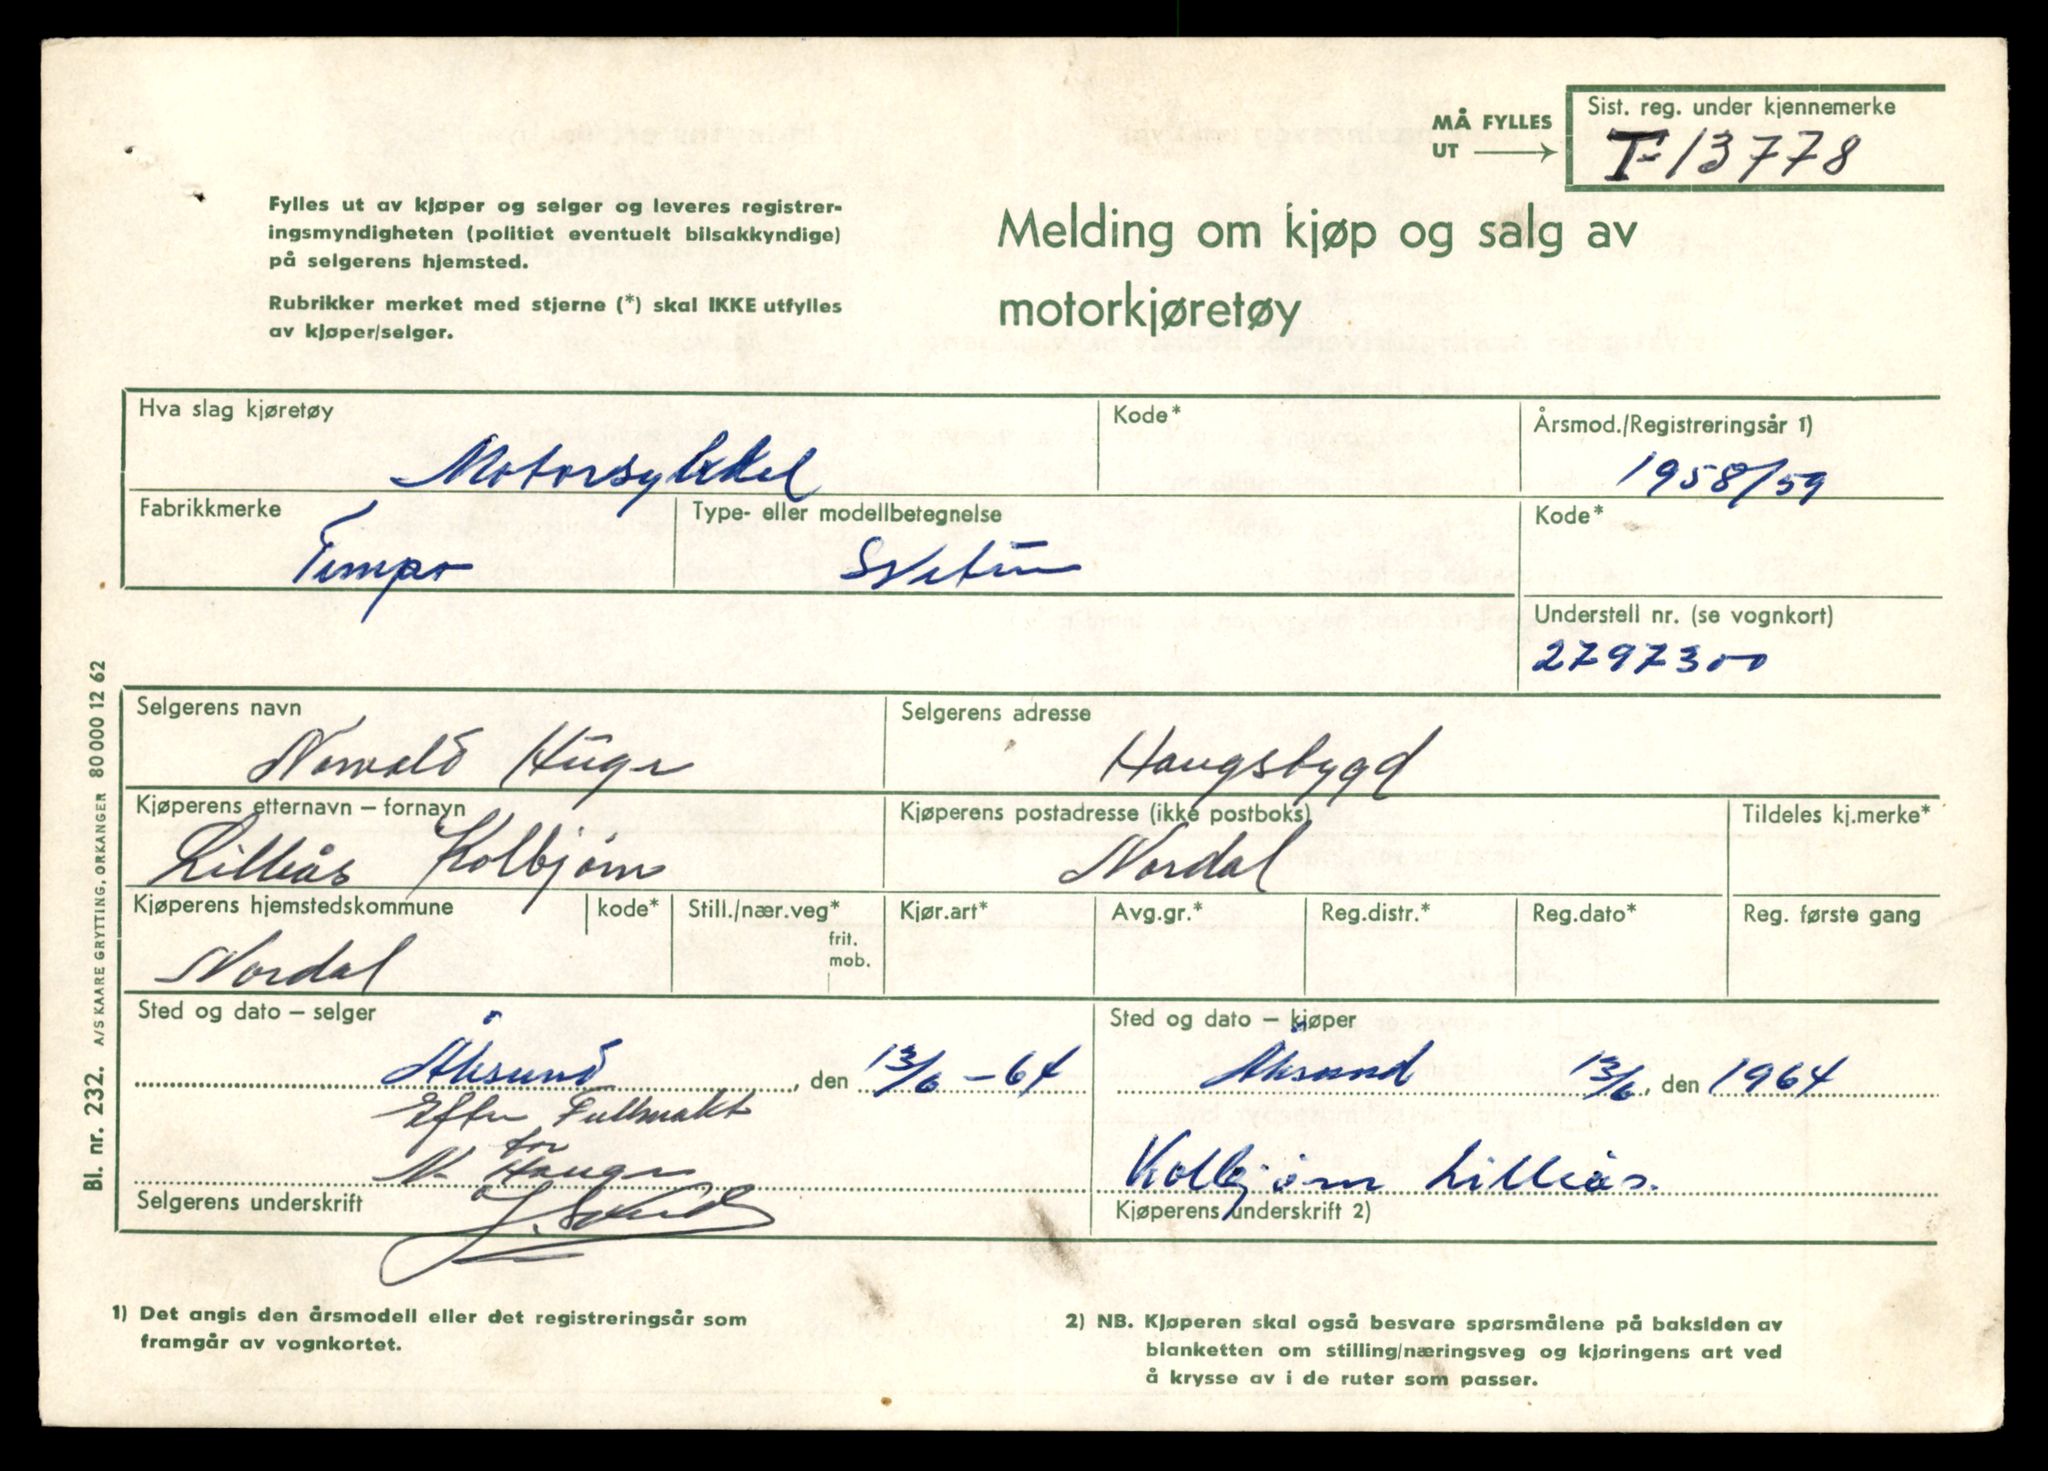 MÅ FYLLES
UT
Sist. reg. under kjennemerke
T-13778
Fylles ut av kjøper og selger og leveres registrer-
ingsmyndigheten (politiet eventuelt bilsakkyndige)
på selgerens hjemsted.
Rubrikker merket med stjerne (*) skal IKKE utfylles
av kjøper/selger.
Melding om kjøp og salg av
motorkjøretøy
Hva slag kjøretøy
Motorsykkel
Kode*
Årsmod./Registreringsår 1)
1958/59
Fabrikkmerke
Tempo
Type- eller modellbetegnelse
Kode*
Understell nr. (se vognkort)
2797300
Selgerens navn
Norvald Hauge
Selgerens adresse
Haugsbygd
Kjøperens etternavn – fornavn
Lilleås Kolbjørn
Kjøperens postadresse (ikke postboks)
Nordal
Tildeles kj.merke*
Kjøperens hjemstedskommune
Nordal
kode*
Still./nær.veg*
frit.
mob.
Kjør.art*
Avg.gr.*
Reg.distr.*
Reg.dato*
Reg. første gang
Sted og dato – selger
Ålesund, den 13/6 - 64
Efter Fullmakt
for
N. Hauge
Selgerens underskrift
Sted og dato – kjøper
Ålesund 13/6, den 1964
Kolbjørn Lilleås.
Kjøperens underskrift 2)
1) Det angis den årsmodell eller det registreringsår som
framgår av vognkortet.
2) NB. Kjøperen skal også besvare spørsmålene på baksiden av
blanketten om stilling/næringsveg og kjøringens art ved
å krysse av i de ruter som passer.
Bl. nr. 232. A/S KAARE GRYTTING, ORKANGER 80 000 12 62